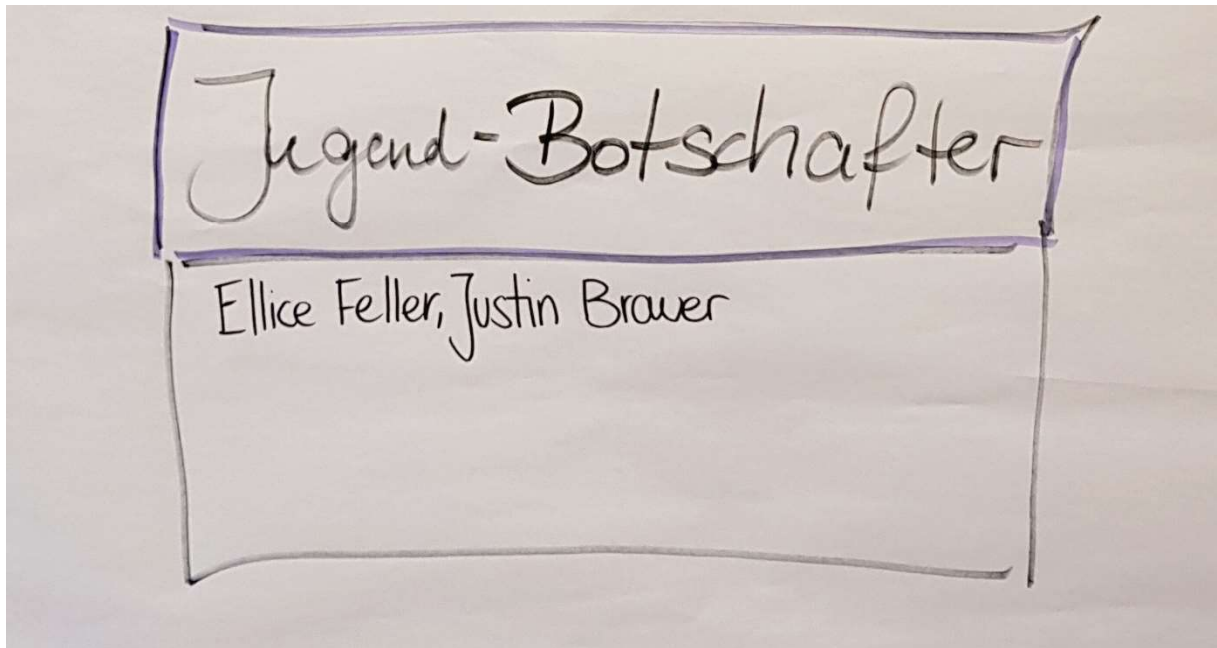 Jugend-Botschafter
Ellice Feller, Justin Brauer